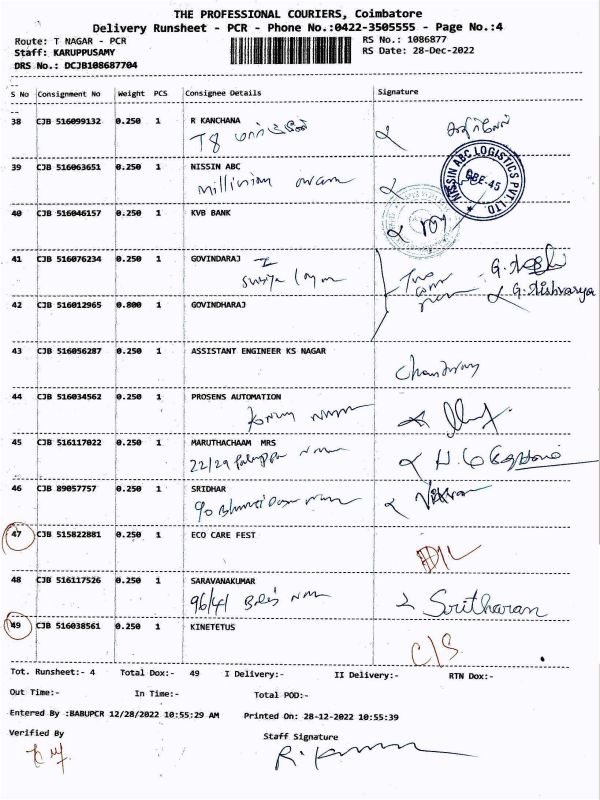 THE PROFESSIONAL COURIERS, Coimbatore
Delivery Runsheet - PCR - Phone No.:0422-3505555 - Page No.:4
Route: T NAGAR - PCR RS No.: 1086877
Staff: KARUPPUSAMY RS Date: 28-Dec-2022
DRS No.: DCJB108687704
S No Consignment No Weight PCS Consignee Details Signature
38 CJB 516099132 0.250 1 R KANCHANA
T8
39 CJB 516063651 0.250 1 NISSIN ABC
NISSIN ABC LOGISTICS PVT. LTD.
CBE-45
40 CJB 516046157 0.250 1 KVB BANK
41 CJB 516076234 0.250 1 GOVINDARAJ
G. Aishvarya
42 CJB 516012965 0.800 1 GOVINDHARAJ
43 CJB 516056287 0.250 1 ASSISTANT ENGINEER KS NAGAR
44 CJB 516034562 0.250 1 PROSENS AUTOMATION
45 CJB 516117022 0.250 1 MARUTHACHAAM MRS
22/29
46 CJB 89057757 0.250 1 SRIDHAR
Vikram
47 CJB 515822881 0.250 1 ECO CARE FEST
D/L
48 CJB 516117526 0.250 1 SARAVANAKUMAR
96/41 Sritharan
49 CJB 516038561 0.250 1 KINETETUS
C/S
Tot. Runsheet:- 4 Total Dox:- 49 I Delivery:- II Delivery:- RTN Dox:-
Out Time:- In Time:- Total POD:-
Entered By :BABUPCR 12/28/2022 10:55:29 AM Printed On: 28-12-2022 10:55:39
Verified By Staff Signature